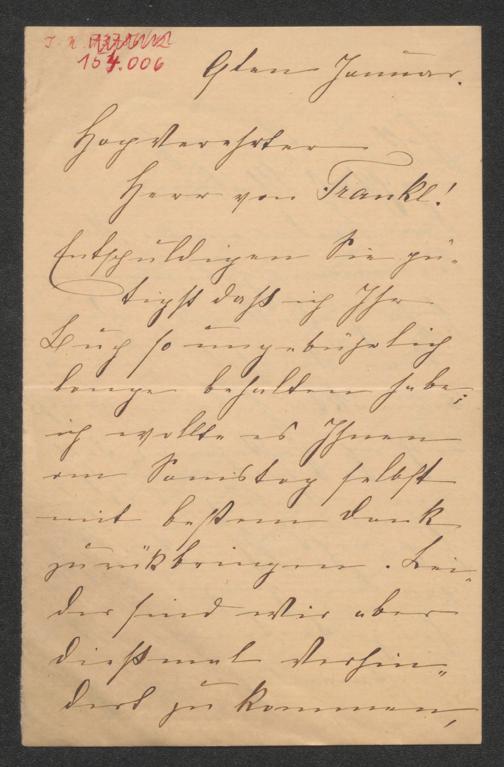 I. N.
154.006
9ten Januar.
Hochverehrter
Herr von Frankl!
Entschuldigen Sie gü-
tigst daß ich Ihr
Buch so ungebührlich
lange behalten habe;
ich wollte es Ihnen
am Samstag selbst
mit bestem Dank
zurükbringen. Lei-
der sind wir aber
dießmal verhin-
dert zu kommen,